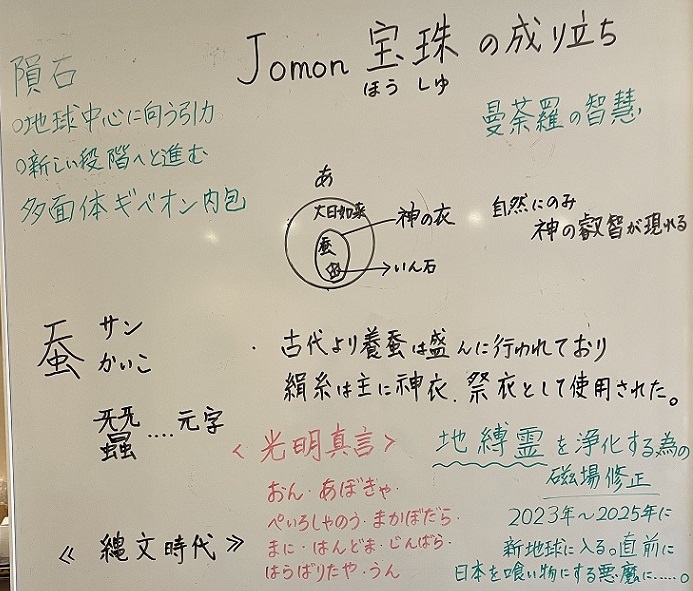 Jomon 宝珠 の成り立ち
ほう しゅ
隕石
○地球中心に向う引力
○新しい段階へと進む
多面体ギベオン内包
曼荼羅の智慧
あ
大日如来
蚕
神の衣
いん石
自然にのみ
神の叡智が現れる
蚕 サン
かいこ
・古代より養蚕は盛んに行われており
絹糸は主に神衣、祭衣として使用された。
蠶 ‥‥元字
《 縄文時代 》
〈 光明真言 〉
おん・あぼきゃ・
べいろしゃのう・まかぼだら・
まに・はんどま・じんばら・
はらばりたや・うん
地縛霊を浄化する為の
磁場修正
2023年~2025年に
新地球に入る。直前に
日本を喰い物にする悪魔に‥‥‥。